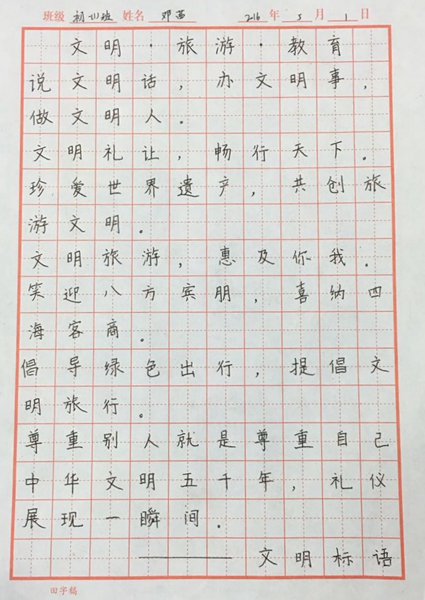 班级 初四班 姓名 邓茜 216年 5月 1日
文明·旅游·教育
说文明话，办文明事，
做文明人。
文明礼让，畅行天下。
珍爱世界遗产，共创旅
游文明。
文明旅游，惠及你我。
笑迎八方宾朋，喜纳四
海客商。
倡导绿色出行，提倡文
明旅行。
尊重别人就是尊重自己
中华文明五千年，礼仪
展现一瞬间。
——— 文明标语
田字稿